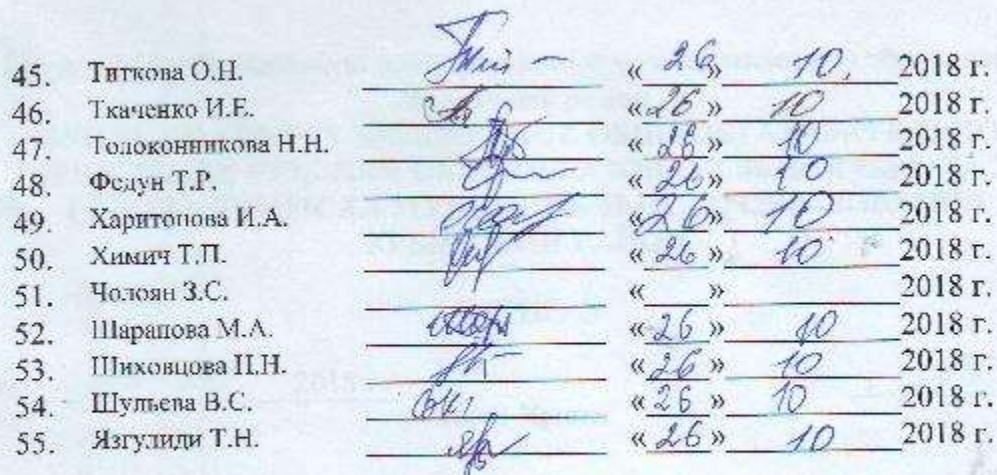 45. Титкова О.Н. « 26 » 10. 2018 г.
46. Ткаченко И.Е. « 26 » 10 2018 г.
47. Толоконникова Н.Н. « 26 » 10 2018 г.
48. Федун Т.Р. « 26 » 10 2018 г.
49. Харитонова И.А. « 26 » 10 2018 г.
50. Химич Т.П. « 26 » 10 2018 г.
51. Чолоян З.С. « » 2018 г.
52. Шарапова М.А. « 26 » 10 2018 г.
53. Шиховцова Н.Н. « 26 » 10 2018 г.
54. Шульева В.С. « 26 » 10 2018 г.
55. Язгулиди Т.Н. « 26 » 10 2018 г.